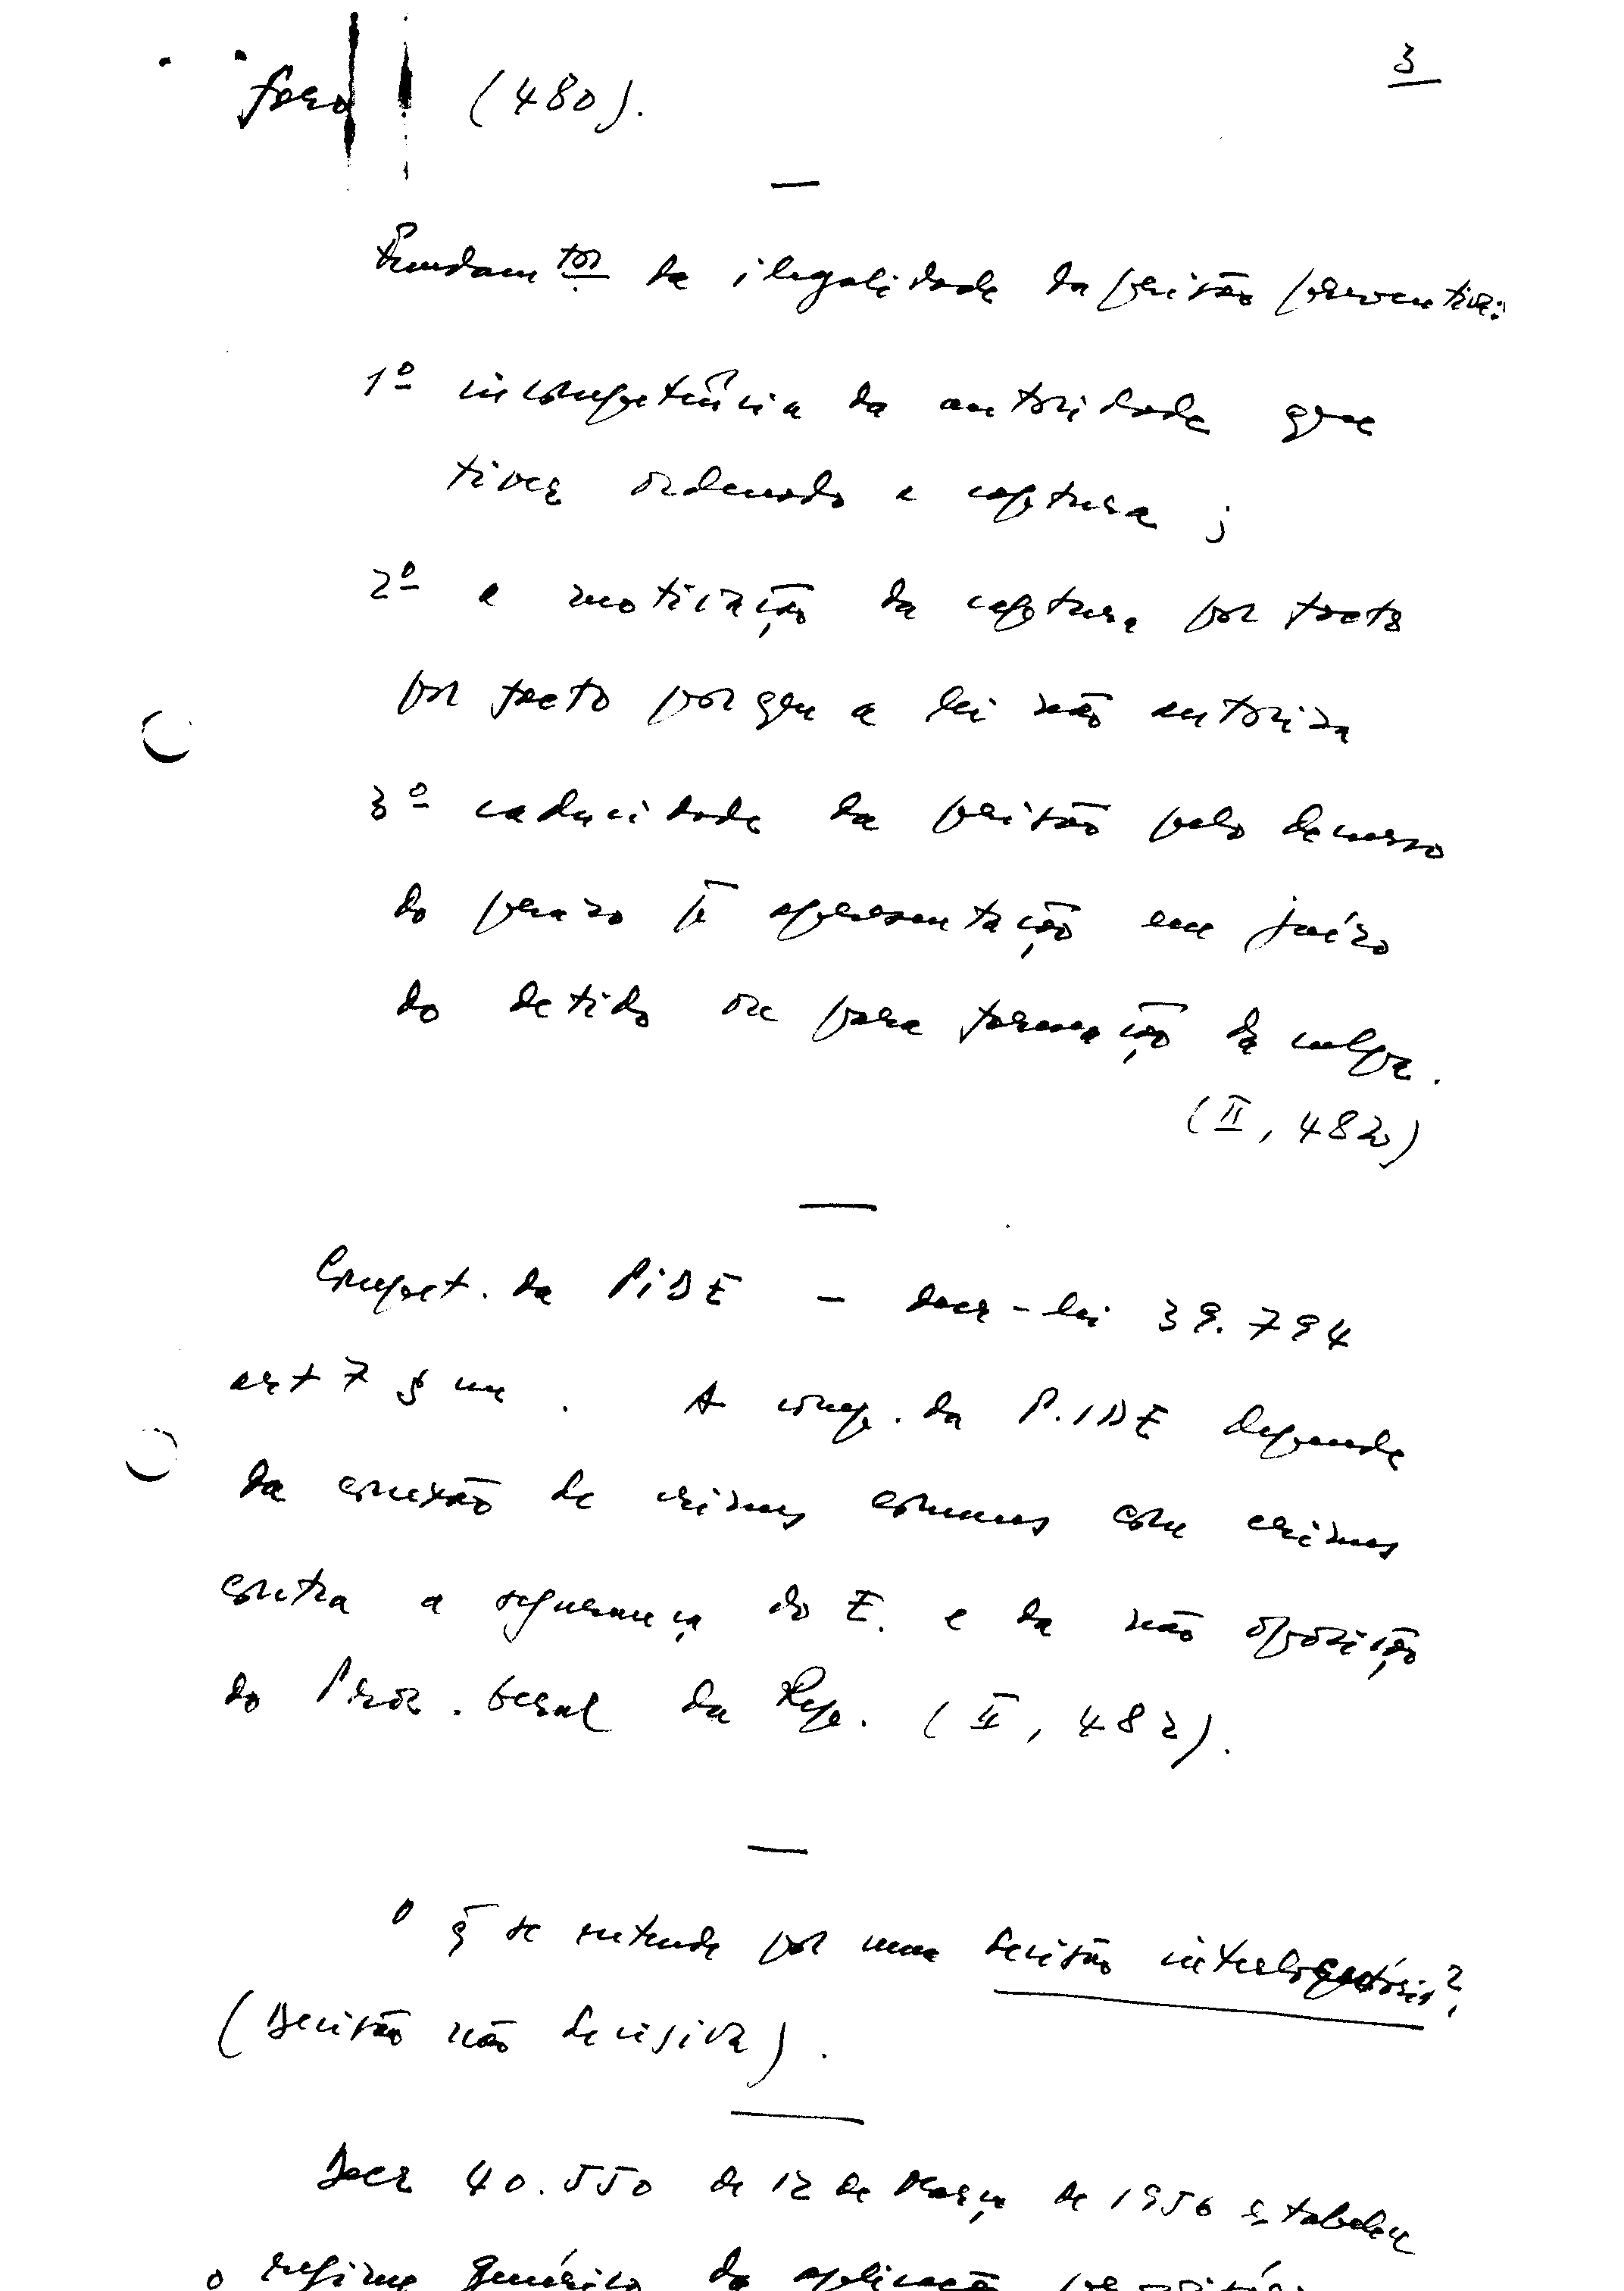 3
foro (480).
Fundamtos da ilegalidade da prisão preventiva:
1º incompetência da autoridade que
tiver ordenado a captura ;
2º a motivação da captura por facto
por facto porque a lei não autoriza
3º caducidade da prisão pelo decurso
do prazo p̄ apresentação em juízo
do detido ou para formação da culpa.
(II, 482)
Compet. da PIDE – decr-lei 39.794
art 7 § un . A comp. da P.IDE depende
da conexão de crimes comuns com crimes
contra a segurança do E. e da não oposição
do Proc. Geral da Rep. (II, 482).
O q̄ se entende por uma decisão interlogatória?
(Decisão não decisiva) .
Decr 40.550 de 12 de Março de 1956 estabelece
o regime genérico da aplicação